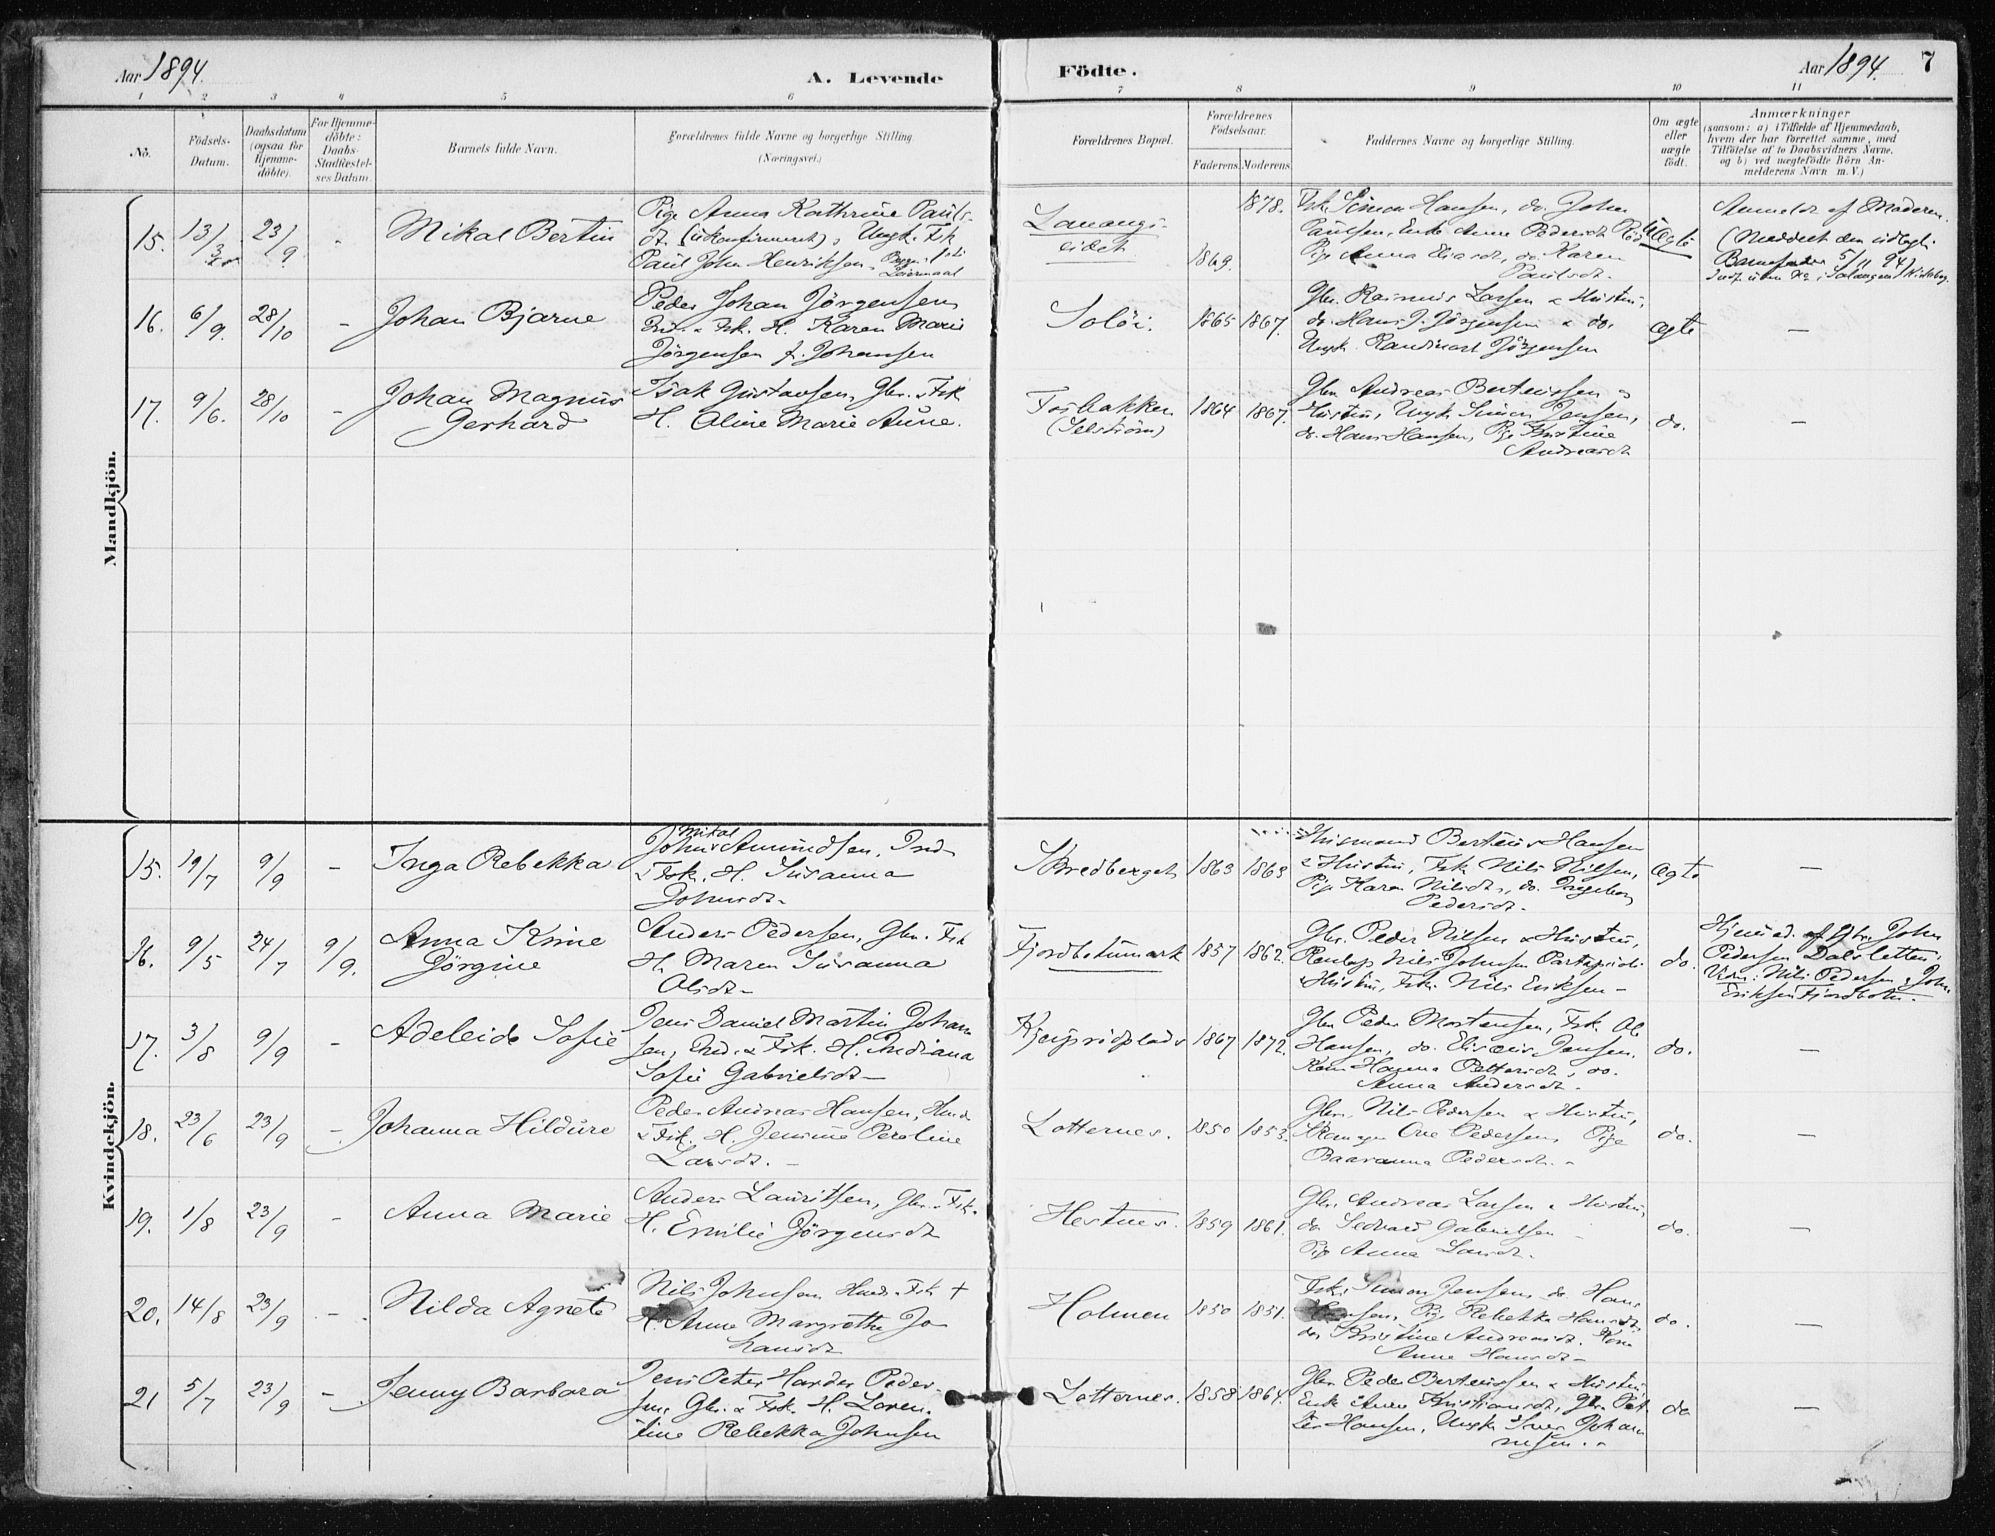 Aar 1894.
A. Levende
Födte.
Aar 1894.
7
1 2 3 4 5 6
7 8 9 10 11
No.
Födsels-
Datum.
Daabsdatum
(ogsaa for
Hjemme-
döbte).
For Hjemme-
döbte:
Daabs-
Stadfæstel-
ses Datum.
Barnets fulde Navn.
Forældrenes fulde Navne og borgerlige Stilling.
(Næringsvei.)
Forældrenes Bopæl.
Forældrenes
Födselsaar.
Faderens. Moderens.
Faddernes Navne og borgerlige Stilling.
Om ægte
eller
uægte
födt.
Anmærkninger
(saasom: a) i Tilfælde af Hjemmedaab,
hvem der har forrettet samme, med
Tilföielse af to Daabsvidners Navne,
og b) ved uægtefödte Börn An-
melderens Navn m. V.)
Mandkjön.
15. 13/3 23/9 - Mikal Bertin
Pige Anna Kathrine Pauls-
dt. (ukonfirmeret), Ungk. Fsk
Paul John Henriksen
Leiermaal
eidet
1869.
1878.
Fsk. Simon Hansen, do. John
Paulsen, Enke Anne Pedersdt
Pige Anna Eliasdt, do. Karen
Paulsdt.
Uægte
Anmeldt af Moderen.
(Meddelt den udlagte
Barnefader 5/11 94)
16. 6/9. 28/10 - Johan Bjarne
Peder Johan Jörgensen
Ind. & Fsk. H. Karen Marie
Jörgensen f. Johansen
Solöi.
1865 1867.
Gbr. Rasmus Larsen & Hustru,
do. Hans J. Jörgensen & do.
Ungk. Jörgensen
ægte
-
17. 9/6. 28/10 - Johan Magnus
Gerhard
Isak Gustavsen, Gbr. & Fsk
H. Oline Marie Aune.
Fosbakken
(Selström)
1864 1867.
Gbr Andreas Berteussen &
Hustru, Ungk Simon Jensen,
do. Hans Hansen, Pige Kristine
Andreasdt
do.
-
Kvindekjön.
15. 19/7 9/9 - Inga Rebekka
Mikal
Johan Amundsen, Ind
& Fsk. H. Susanna
Johnsdt.
Skredberget
1863 1863
Husmand Berteus Hansen
& Hustru, Fsk Nils Nilsen,
Pige Karen Nilsdt, do. Ingeborg
Pedersdt.
ægte
-
16. 9/5 24/7 9/9. Anna Krine
Jörgine
Anders Pedersen, Gbr. Fsk
H. Maren Susanna
Olsdt
Fjordbotnmark
1857 1862.
Gbr. Peder Nilsen & Hustru,
Nils Johnsen
& Hustru, Fsk. Nils Eriksen -
do.
Hjemmed. af Gbr. John
Pedersen Dalsletten.
Vidn: Nils Pedersen, John
Eriksen Fjordbotn.
17. 3/8 9/9 - Adeleide Sofie
Jens Daniel Martin Johan
sen, Ind. & Fsk. H. Indiana
Sofie Gabrielsdt -
1867 1872.
Gbr Peder Mortensen, Fsk. Ole
Hansen, do. Elisæus Jensen.
Kone Hanna Pettersdt, do.
Anna Andersdt.
do.
-
18. 23/6 23/9 - Johanna Hildure
Peder Andreas Hansen, Husm
& Fsk. H. Jensine Peroline
Larsdt. -
Lotternes.
1850 1853.
Gbr. Nils Pedersen & Hustru,
Ole Pedersen, Pige
Pedersdt.
do.
-
19. 1/8 23/9 - Anna Marie
Anders Lauritsen, Gbr. & Fsk.
H. Emilie Jörgensdt
Hestnes.
1859 1861.
Gbr. Andreas Larsen & Hustru,
do Gabrielsen
Pige Anna Larsdt.
do.
-
20. 14/8 23/9 - Hilda Agnete
Nils Johnsen Husm. Fsk +
H. Anne Margrethe Jo
hansdt
Holmen
1850 1851.
Fsk. Simon Jensen, do. Hans
Hansen, Pige Rebekka Hansdt,
do. Kristine Andreasdt. Kone
Anne Hansdt -
do.
-
21 5/7 23/9 - Jenny Barbara
Jens Peter Harder Peder-
sen, Gbr. & Fsk. H. Loren-
tine Rebekka Johnsen
Lotternes.
1858 1864.
Gbr Peder Berteussen & Hustru
Enke Anne Kristiansdt, Gbr Pet-
ter Hansen, Ungk Johan
nesen. -
do
-